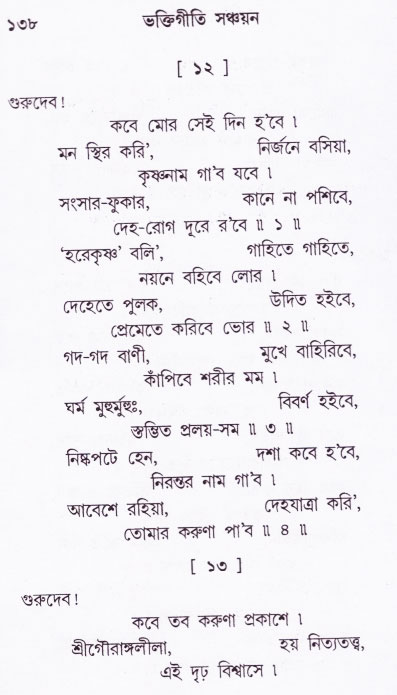 ১৩৮ ভক্তিগীতি সঞ্চয়ন
[ ১২ ]
গুরুদেব!
কবে মোর সেই দিন হ'বে ।
মন স্থির করি', নির্জনে বসিয়া,
কৃষ্ণনাম গা'ব যবে ।
সংসার-ফুকার, কানে না পশিবে,
দেহ-রোগ দূরে র'বে ॥ ১ ॥
'হরেকৃষ্ণ' বলি', গাহিতে গাহিতে,
নয়নে বহিবে লোর ।
দেহেতে পুলক, উদিত হইবে,
প্রেমেতে করিবে ভোর ॥ ২ ॥
গদ-গদ বাণী, মুখে বাহিরিবে,
কাঁপিবে শরীর মম ।
ঘর্ম মুহুর্মুহুঃ, বিবর্ণ হইবে,
স্তম্ভিত প্রলয়-সম ॥ ৩ ॥
নিষ্কপটে হেন, দশা কবে হ'বে,
নিরন্তর নাম গা'ব ।
আবেশে রহিয়া, দেহযাত্রা করি',
তোমার করুণা পা'ব ॥ ৪ ॥
[ ১৩ ]
গুরুদেব!
কবে তব করুণা প্রকাশে ।
শ্রীগৌরাঙ্গলীলা, হয় নিত্যতত্ত্ব,
এই দৃঢ় বিশ্বাসে ।